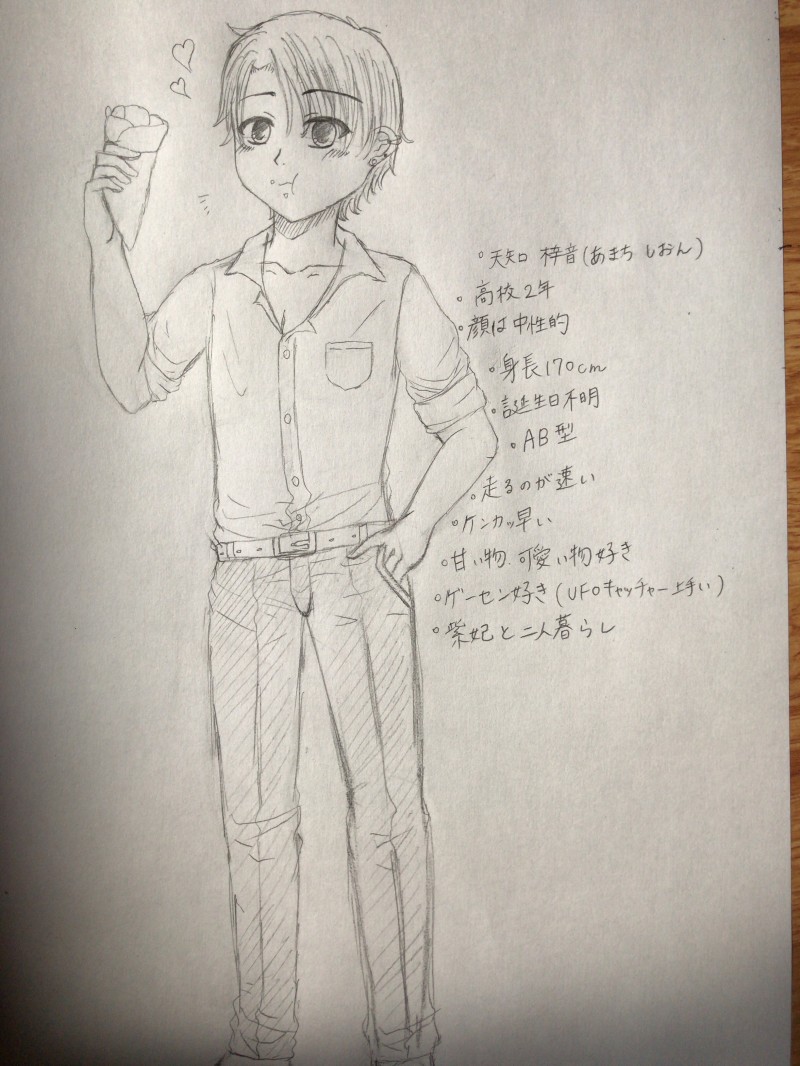 天知 梓音(あまち しおん)
高校2年
顔は中性的
身長170cm
誕生日不明
AB型
走るのが速い
ケンカッ早い
甘い物、可愛い物好き
ゲーセン好き(UFOキャッチャー上手い)
紫妃と二人暮らし